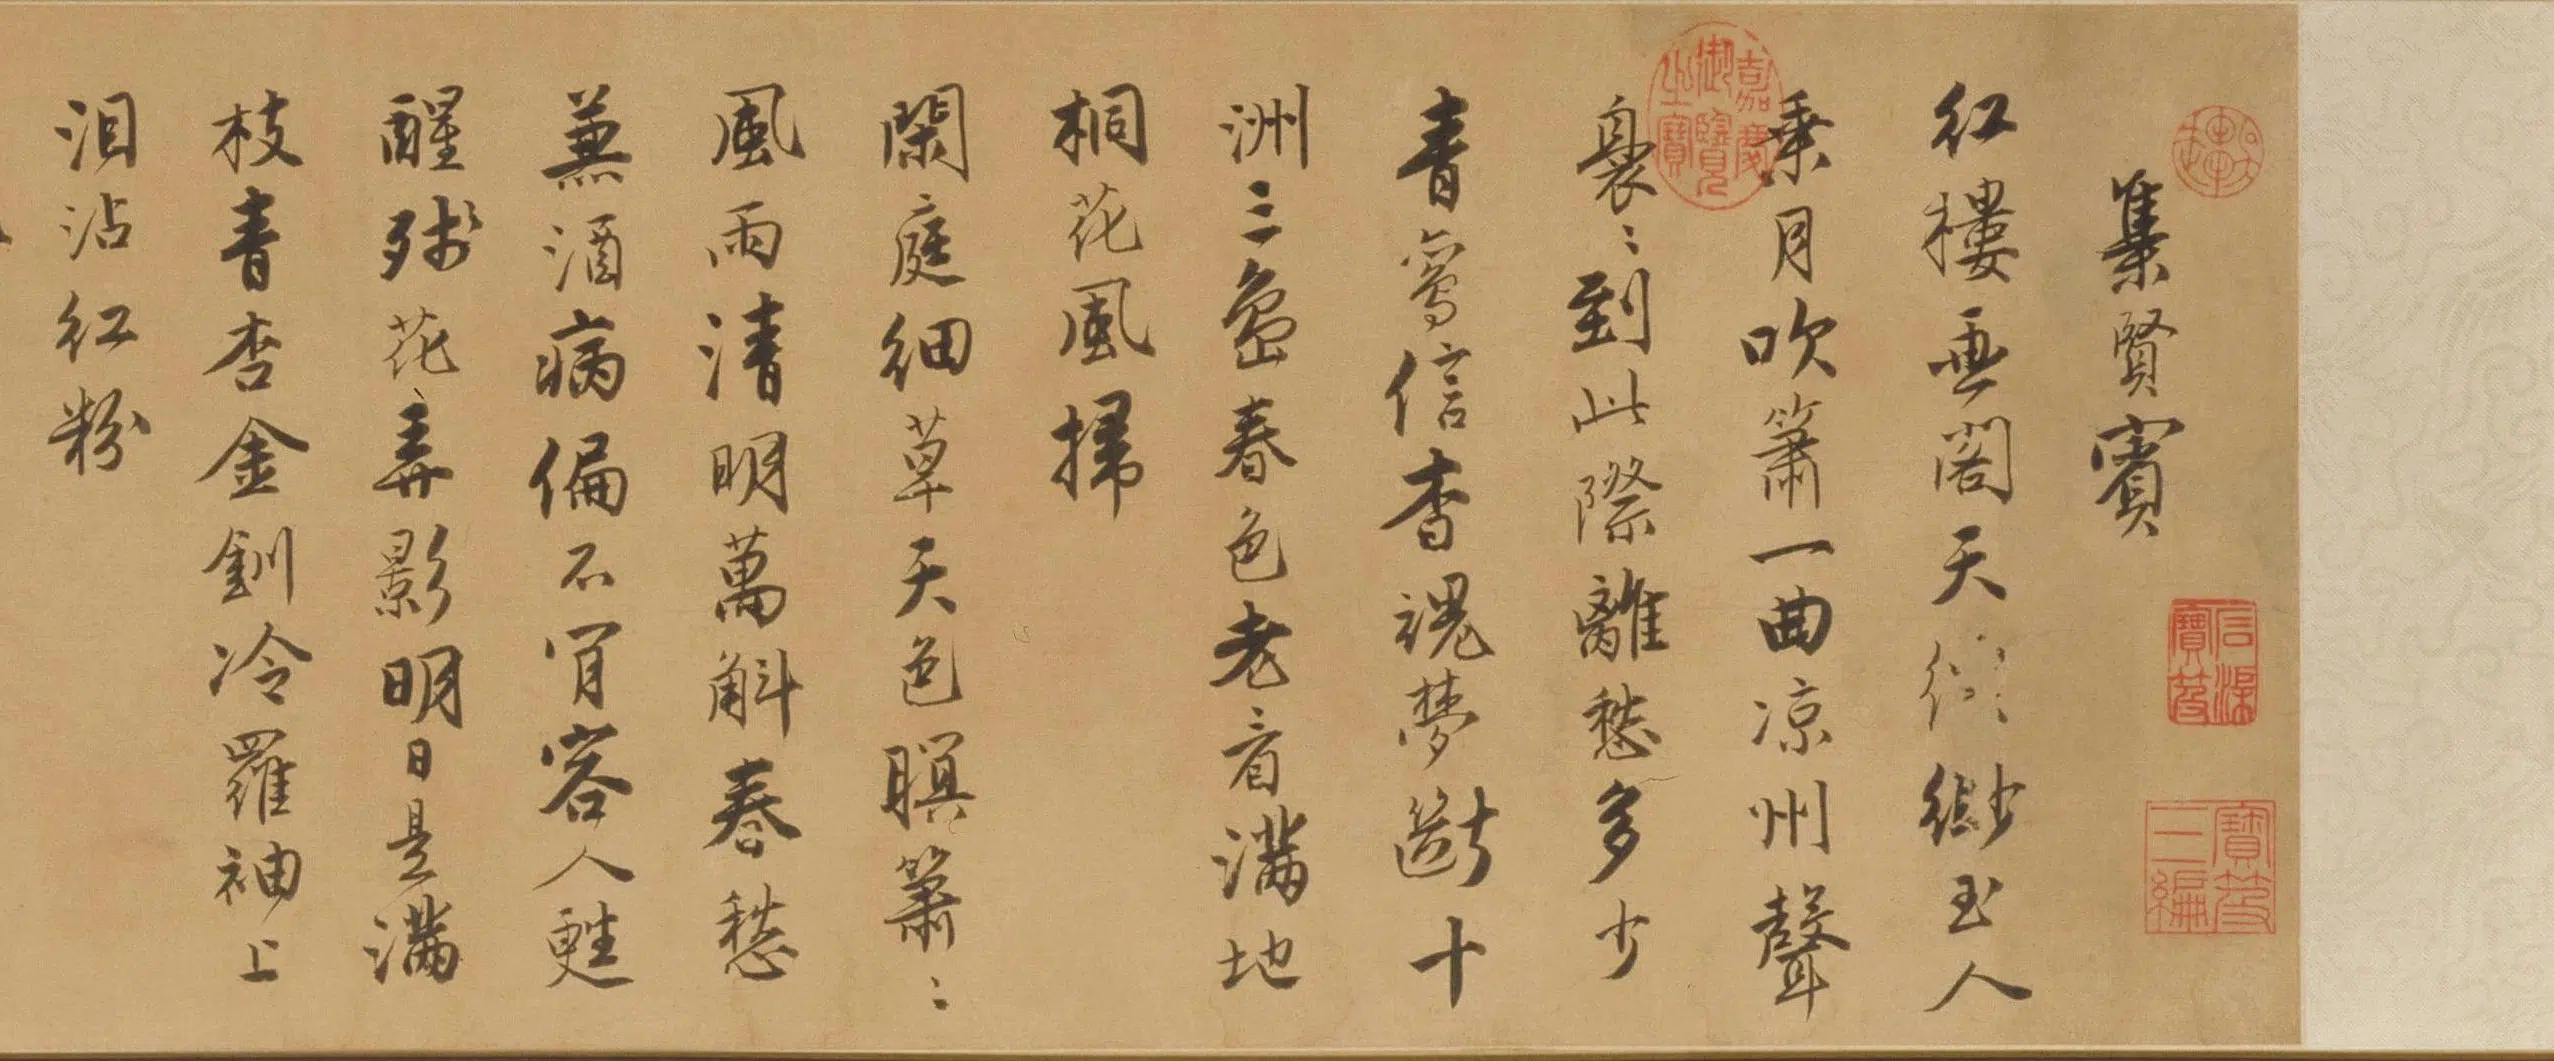 集賢賓
紅樓畫閣天縹緲玉人
乘月吹簫一曲涼州聲
裊〻到此際離愁多少
青鸞信杳魂夢斷十
洲三島春色老看滿地
桐花風掃
閑庭細草天色暝簫〻
風雨清明萬斛春愁
兼酒病偏不肯容人甦
醒殘花弄影明日是滿
枝青杏金釧冷羅袖上
淚沾紅粉
嘉慶御覽之寶
石渠寶笈
寶笈三編